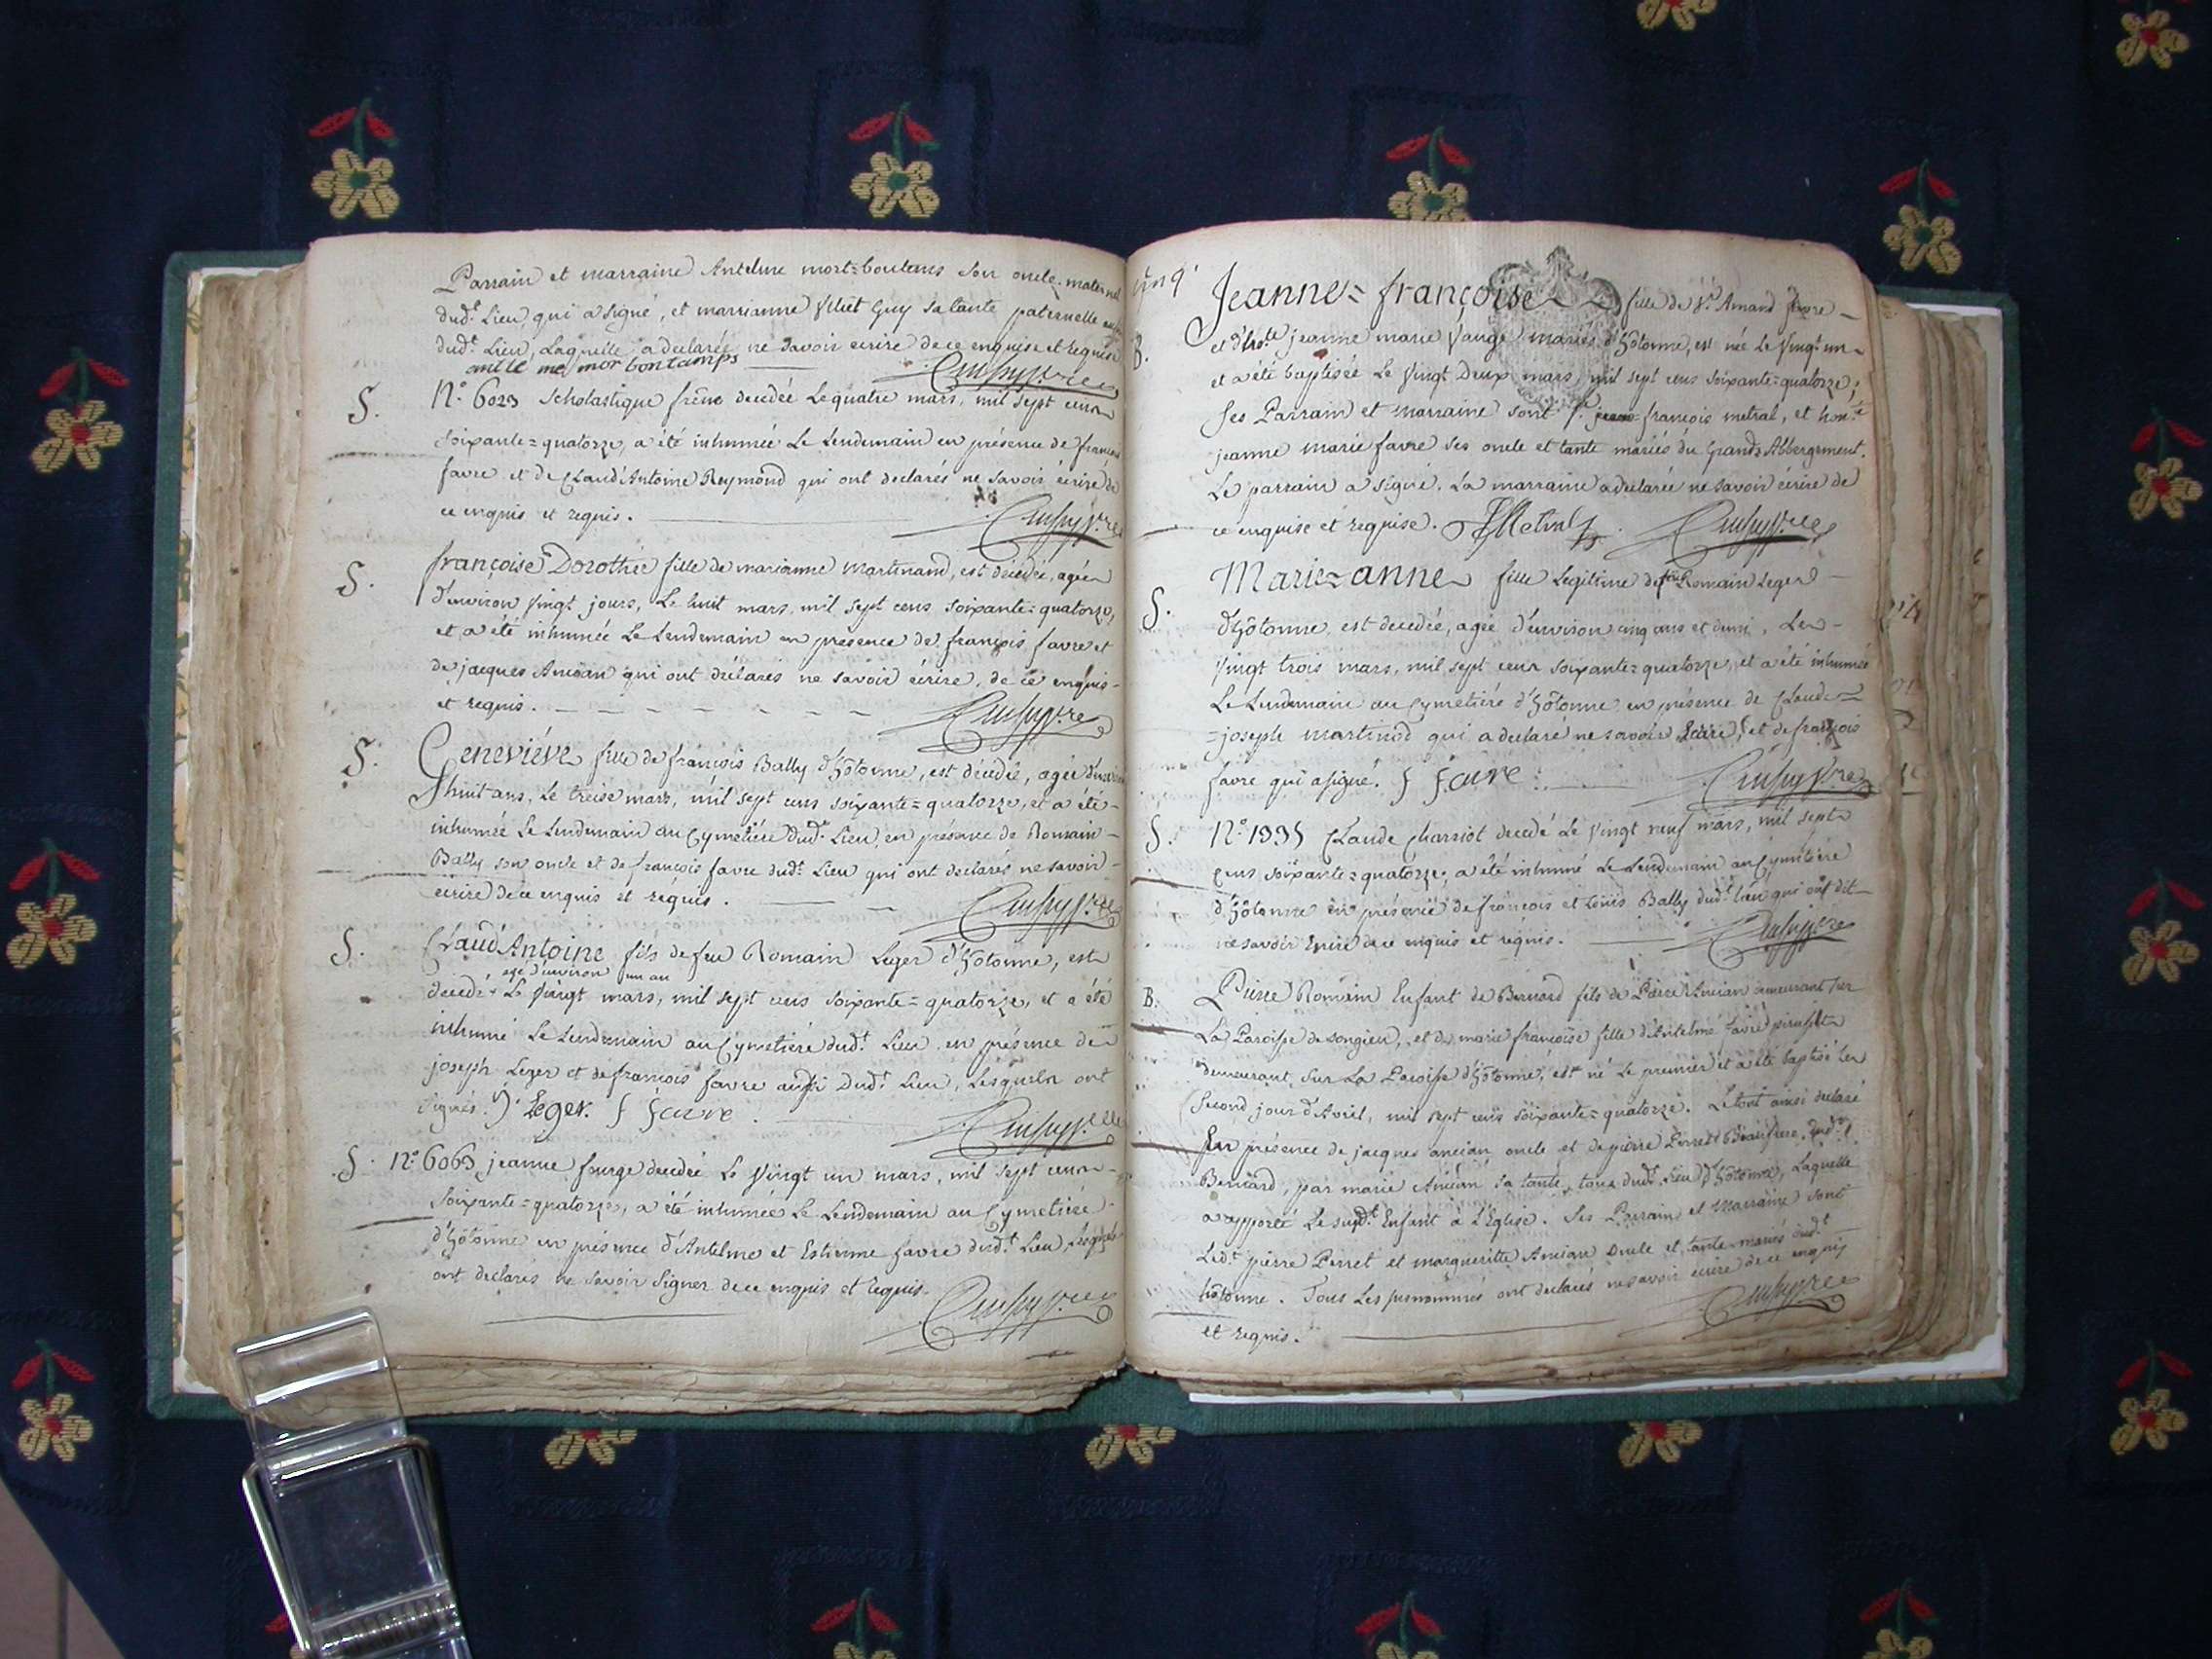 Parrain et marraine Antelme mort=boutems son oncle maternel
dud.t Lieu, qui a signé, et marianne Guy sa tante paternelle
dud.t Lieu, Laquelle a declarée ne savoir ecrire de ce enquise et requise
S. N.o 6023 Scholastique frêne decedée Le quatre mars, mil sept cens
soixante=quatorze, a été inhumée Le Lendemain en présence de françois
favre et de Claud'Antoine Reymond qui ont declarés ne savoir écrire de
ce enquis et requis.
S. françoise Dorothée fille de marianne martinand, est décedée, agée
d'environ vingt jours, Le huit mars, mil sept cens soixante=quatorze,
et a été inhumée Le Lendemain en présence de françois favre et
de jacques Ancian qui ont déclarés ne savoir écrire, de ce enquis
et requis.
S. Geneviéve fille de françois Bally d'hôtonne, est décedée, agée d'environ
huit ans, Le treise mars, mil sept cens soixante=quatorze, et a été
inhumée Le Lendemain au Cymetiére dud.t Lieu, en présence de Romain
Bally son oncle et de françois favre dud.t Lieu qui ont declarés ne savoir
écrire de ce enquis et réquis.
S. Claud'Antoine fils de feu Romain Leger d'hôtonne, est
agé d'environ un an
decedé + Le Vingt mars, mil sept cens soixante=quatorze, et a été
inhumé Le Lendemain au Cymetiére dud.t Lieu en présence de
joseph Leger et de françois favre aussi dud.t Lieu, Lesquels ont
signés. J. Leger. f favre.
S. N.o 6063 jeanne fourge decedée Le Vingt un mars, mil sept cens
soixante=quatorze, a été inhumée Le Lendemain au Cymetiére
d'hôtonne en présence d'Antelme et Estienne favre dud.t Lieu, Lesquels
ont declarés ne savoir signer de ce enquis et requis.
B. Jeanne=françoise fille de Amand favre
et d'hon.te jeanne marie Vauge mariés d'hôtonne, est née Le Vingt un
et a été baptisée Le Vingt Deux mars, mil sept cens soixante=quatorze;
ses Parrain et marraine sont françois metral, et hon.te
jeanne marie favre ses oncle et tante mariés du Grand Abbergement.
Le parrain a signé. La marraine a declarée ne savoir écrire de
ce enquise et requise. Metral
S. Marie=anne fille Legitime de feu Romain Leger
d'hôtonne, est decedée, agée d'environ cinq ans et demi, Le
Vingt trois mars, mil sept cens soixante=quatorze, et a été inhumée
Le Lendemain au Cymetiére d'hôtonne en présence de Claude
=joseph martinod qui a declaré ne savoir Ecrire, et de françois
favre qui a signé. f favre.
S. N.o 1335 Claude Charriot decedé Le Vingt neuf mars, mil sept
cens soixante=quatorze, a été inhumé Le Lendemain au Cymetiére
d'hôtonne en présence de françois et Louis Bally dud.t lieu qui ont dit
ne savoir Ecrire de ce enquis et requis.
B. Pierre Romain Enfant de Bernard fils de Pierre Ancian demeurant sur
La Paroisse de songieu, et de marie françoise fille d'Antelme favre
demeurant sur La Paroisse d'hôtonne, est né Le premier et a été baptisé Le
second jour d'Avril, mil sept cens soixante=quatorze. Le tout ainsi declaré
En présence de jacques ancian oncle et de pierre Perret Beaufrere dud.t
Bernard, par marie Ancian sa tante, tous dud.t Lieu d'hôtonne, Laquelle
a apporté Le sud.t Enfant à l'Eglise. Ses Parrain et Marraine sont
Led.t pierre Perret et marguerite Ancian oncle et tante mariés dud.t
hôtonne. Tous Les susnommés ont declarés ne savoir écrire de ce enquis
et requis.